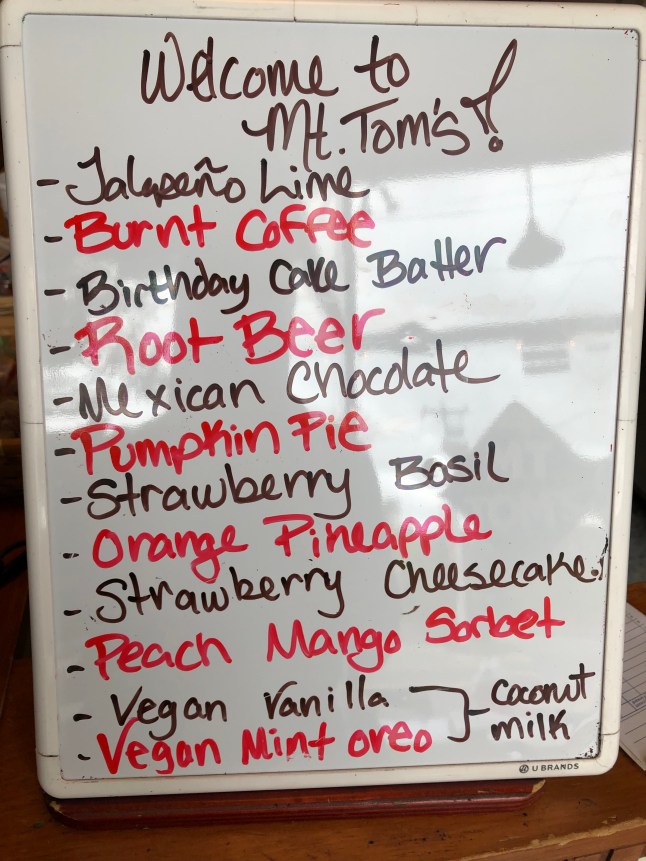 Welcome to
Mt. Tom's!
- Jalapeño Lime
- Burnt Coffee
- Birthday Cake Batter
- Root Beer
- Mexican Chocolate
- Pumpkin Pie
- Strawberry Basil
- Orange Pineapple
- Strawberry Cheesecake
- Peach Mango Sorbet
- Vegan Vanilla
- Vegan Mint oreo
coconut
milk
U BRANDS